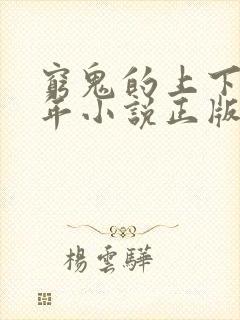 窮鬼的上下
年小說正版
楊雲驊